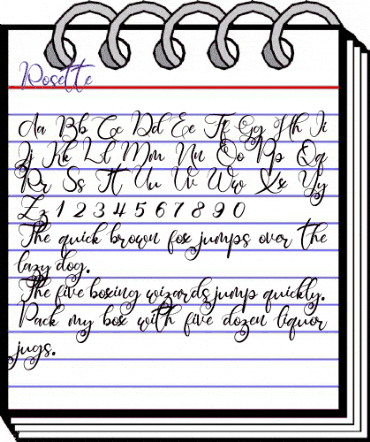 Rosette
Aa Bb Cc Dd Ee Ff Gg Hh Ii
Jj Kk Ll Mm Nn Oo Pp Qq
Rr Ss Tt Uu Vv Ww Xx Yy
Zz 1 2 3 4 5 6 7 8 9 0
The quick brown fox jumps over the
lazy dog.
The five boxing wizards jump quickly.
Pack my box with five dozen liquor
jugs.